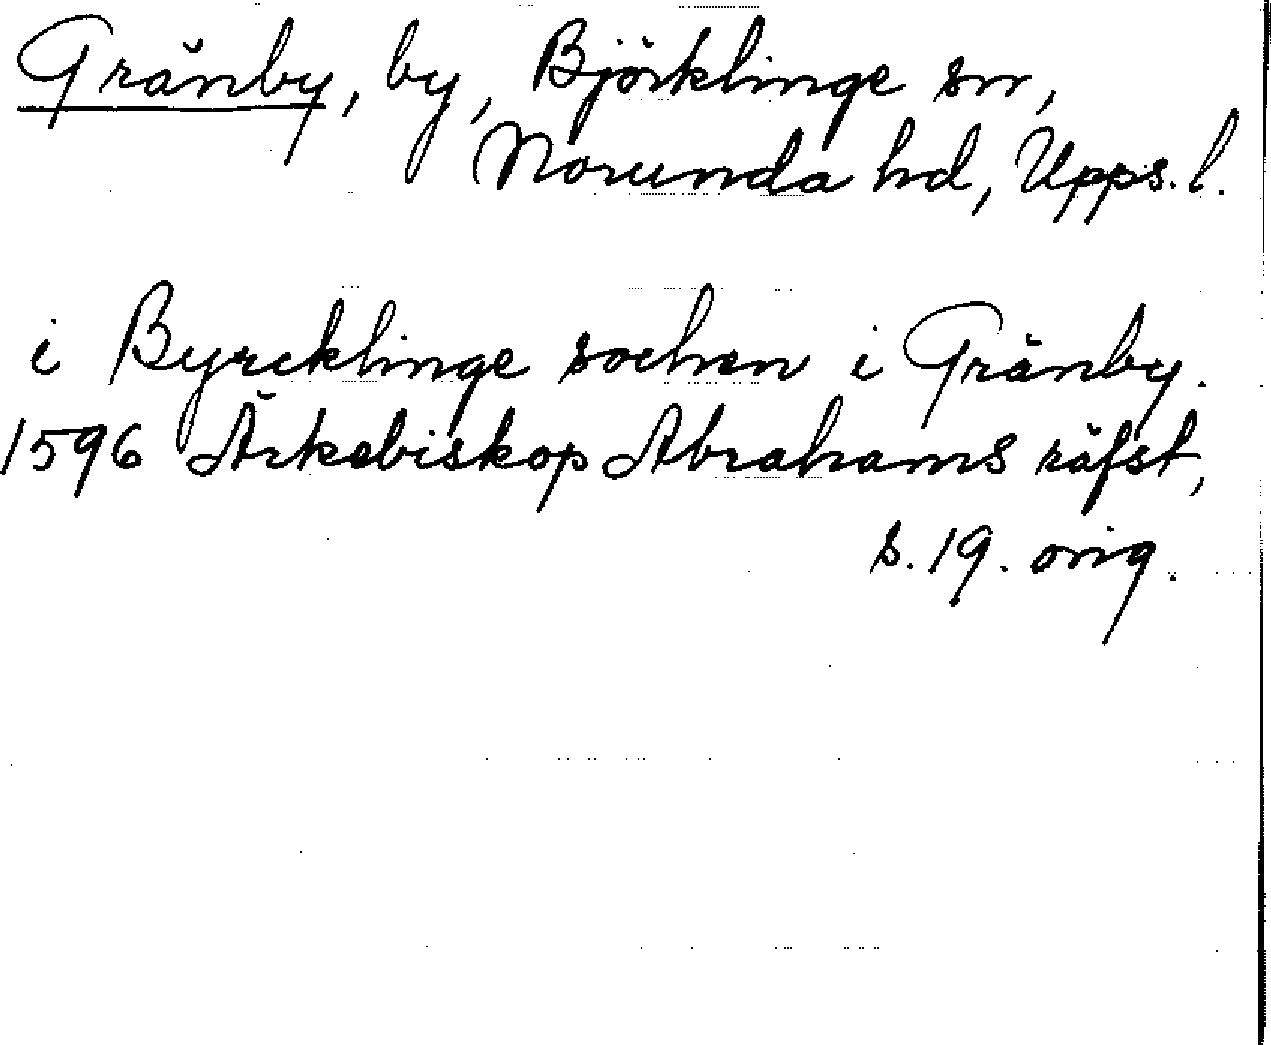 Gränby, by, Björklinge sn,
Norunda hd, Upps. l.
i Byrcklinge sochen i Gränby.
1596 Ärkebiskop Abrahams räfst,
s. 19. orig.